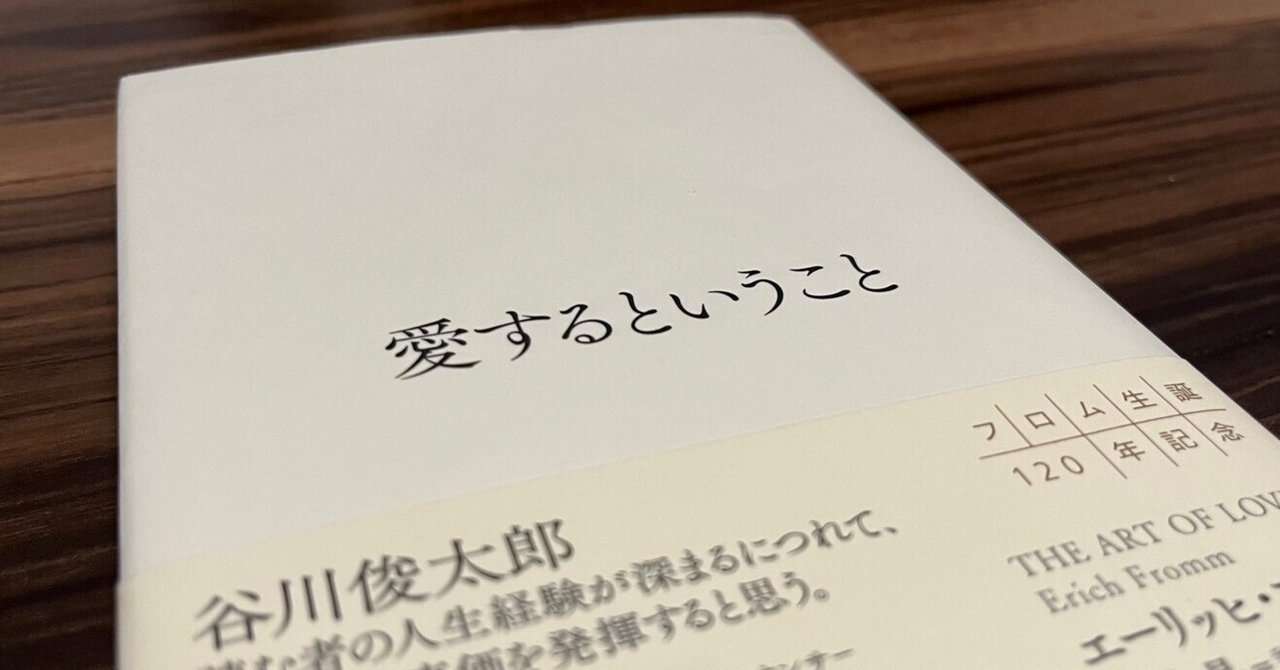 愛するということ
フロム生誕
120年記念
谷川俊太郎
読む者の人生経験が深まるにつれて、
真価を発揮すると思う。
THE ART OF LOV
Erich Fromm
エーリッヒ・